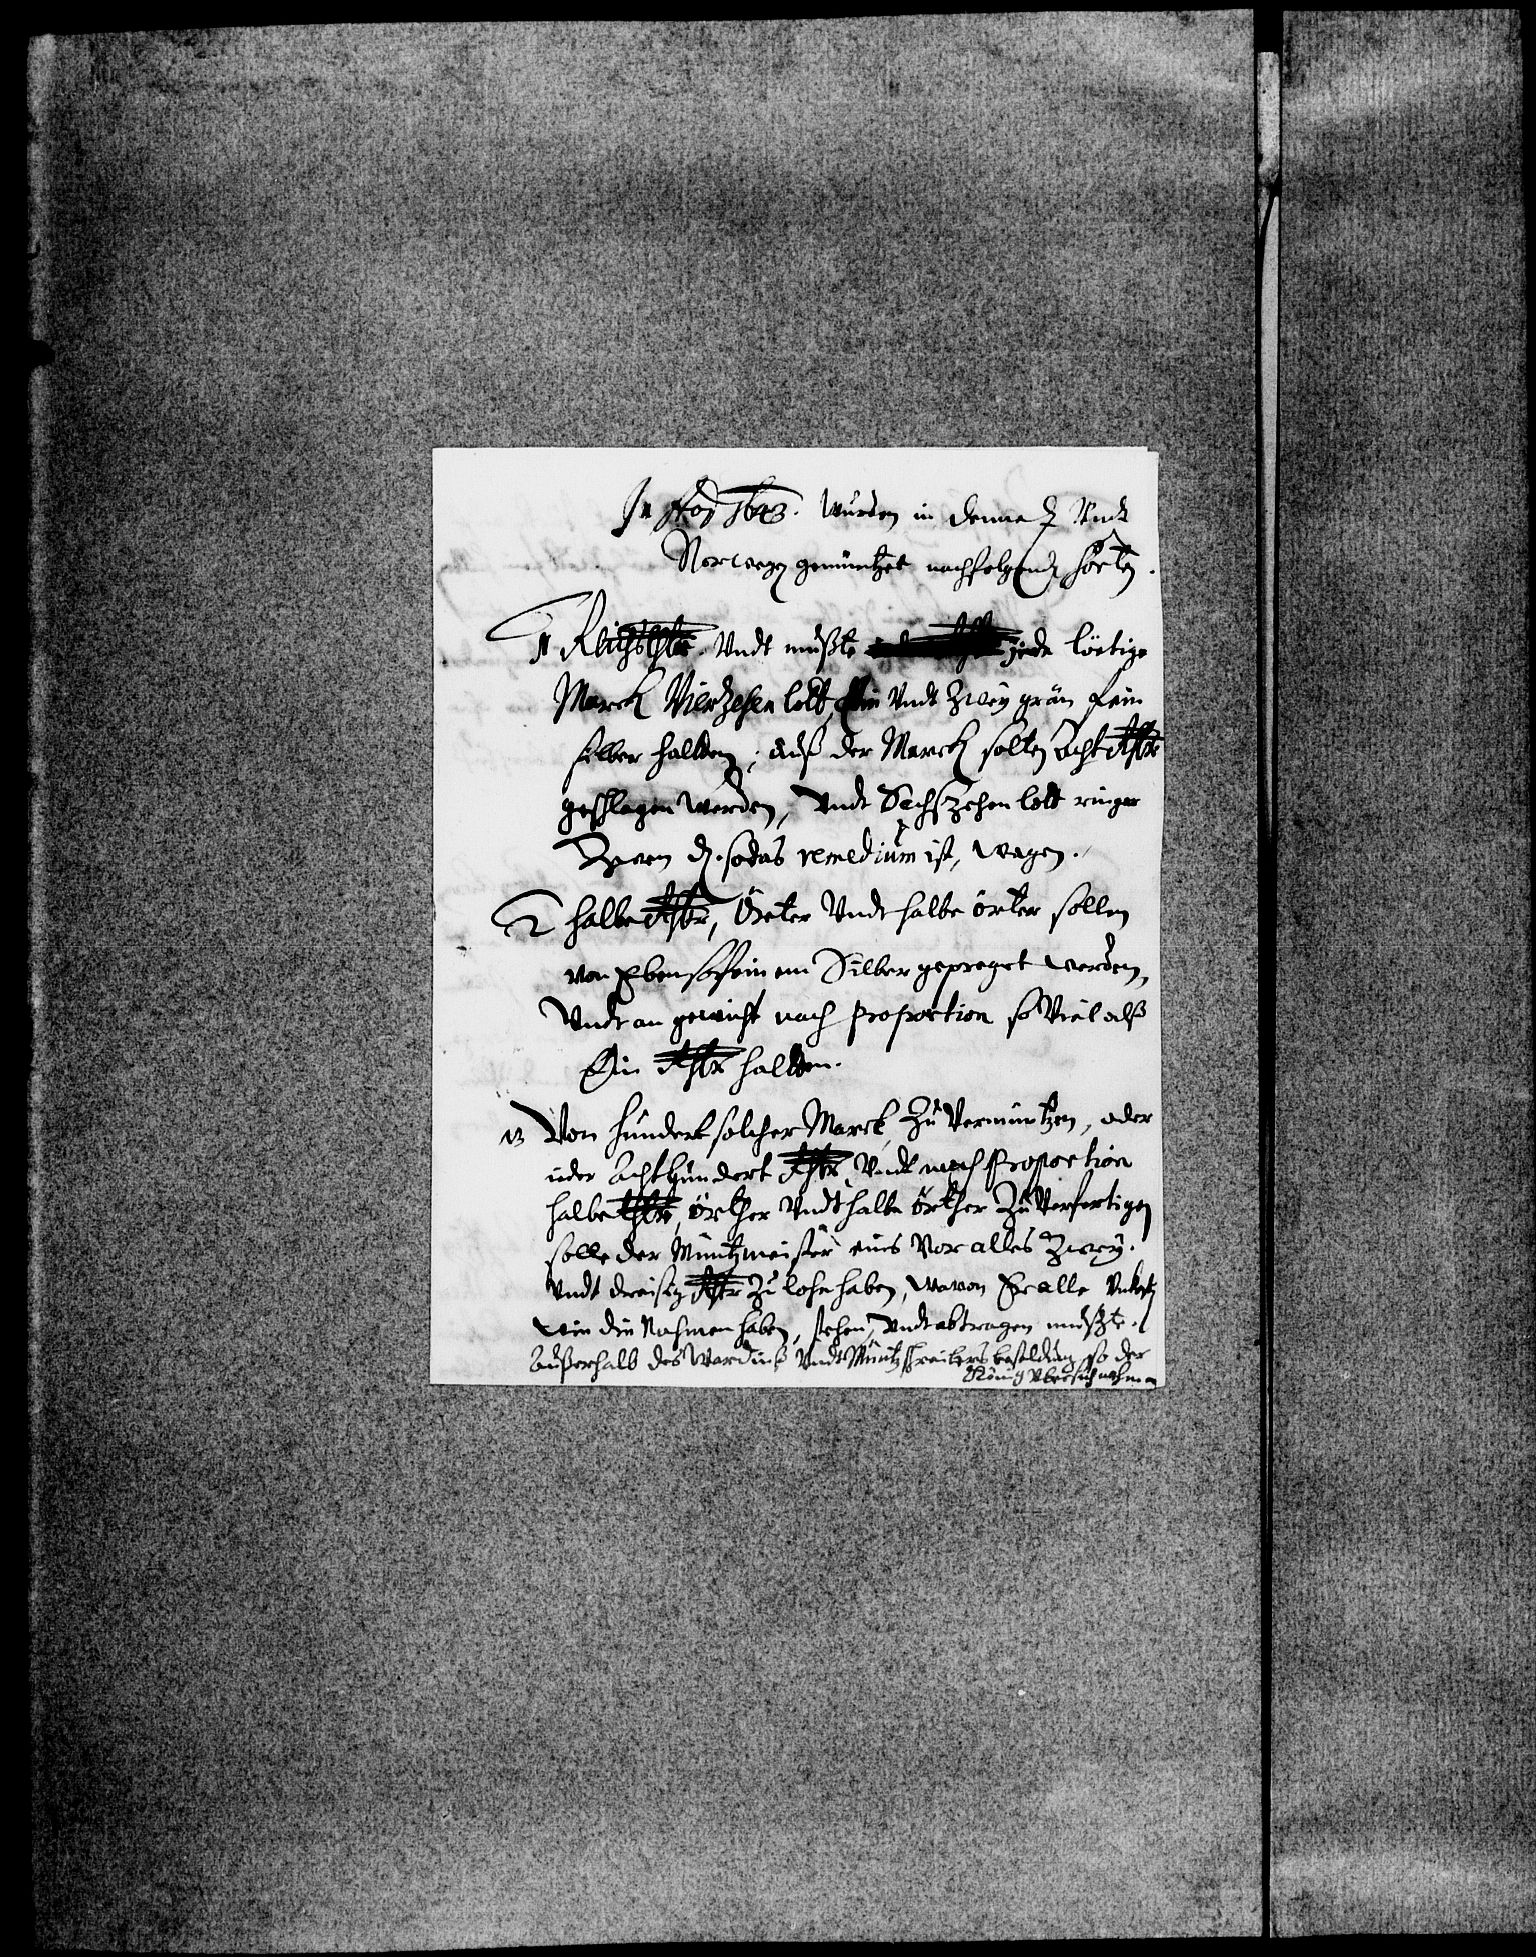 In Ao 1643. wurden in Dennem: Undt
Norwegen gemüntzet nachfolgende sorten.
1 Reichsthlr. Undt muste jede lötige
Marck Vierzehen lott, Undt zwey grän fein
silber halten, auß der Marck solten acht Rthlr
geschlagen werden, Undt Sechszehen lott ringer
so das remedium ist, wagen.
2 halbe Rthlr, Örter Undt halbe örter sollen
von Ebensofeinem Silber gepreget werden,
Undt an gewicht nach proportion so Viel alß
Ein Rthlr halten.
3 Von hundert solcher Marck zu Vermüntzen, oder
jeder Achthundert Rthlr Undt nach Proportion
halbe thlr, örther Undt halbe örther zu Verfertigen
solle der Müntzmeister eins Vor alles zwey.
Undt dreisig Rthlr zu lohn haben, wavon Er alle Unkost
wie die Nahmen haben, stehen, Undt abtragen muste.
Außerhalb des Wardins Undt Müntzschreibers besoldung so der
König über sich nahm